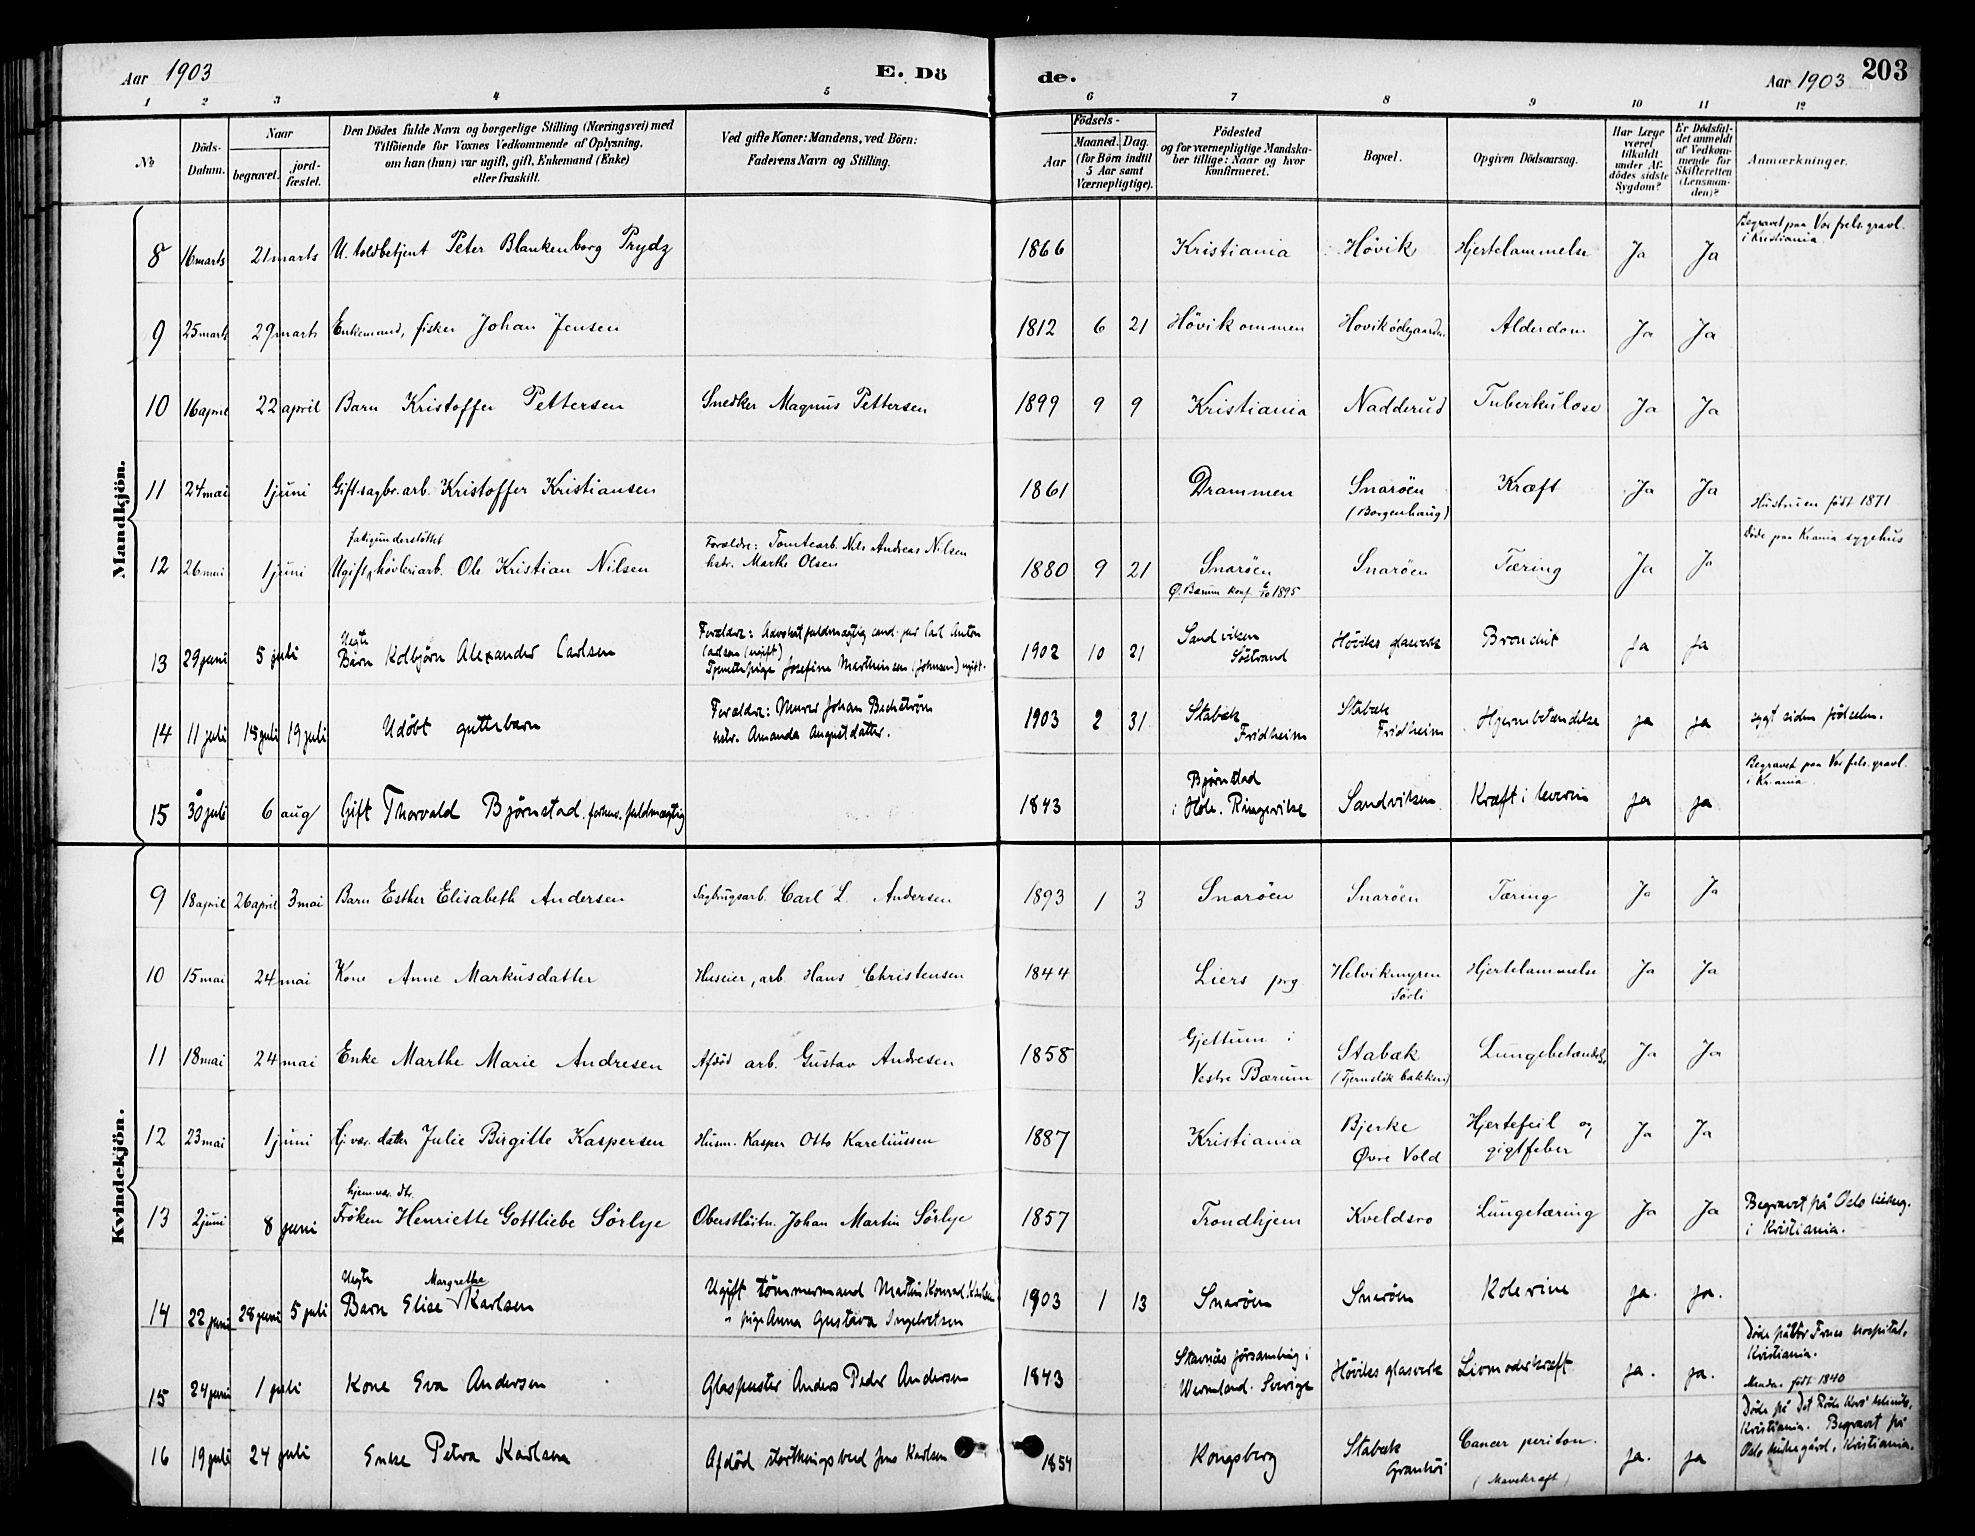 Aar 1903
E. Dö
de.
Aar 1903
203
1 2 3 4 5 6 7 8 9 10 11 12
No
Döds-Datum.
Naar
begravet.
jord-fæstet.
Den Dödes fulde Navn og borgerlige Stilling (Næringsvei) med
Tilföiende for Voxnes Vedkommende af Oplysning,
om han (hun) var ugift, gift, Enkemand (Enke)
eller fraskilt.
Ved gifte Koner: Mandens, ved Börn:
Faderens Navn og Stilling.
Födsels-
Aar
Maaned. Dag.
(for Börn indtil
5 Aar samt
Værnepligtige).
Födested
og for værnepligtige Mandska-
ber tillige: Naar og hvor
konfirmeret.
Bopæl.
Opgiven Dödsaarsag.
Har Læge
været
tilkaldt
under Af-
dödes sidste
Sygdom?
Er Dödsfal-
det anmeldt
af Vedkom-
mende for
Skifteretten
(Lensman-
den)?
Anmærkninger.
Mandkjön.
8 16 marts 21 marts U. toldbetjent Peter Blankenborg Prydz 1866 Kristiania Hövik Hjertelammelse Ja Ja
Begravet paa Vor frels. gravl.
i Kristiania.
9 25 marts 29 marts Enkemand, fisker Johan Jensen 1812 6 21 Hövikommen Hovikødegaarden Alderdom Ja Ja
10 16 april 22 april Barn Kristoffer Pettersen Snedker Magnus Pettersen 1899 9 9 Kristiania Nadderud Tuberkulose Ja Ja
11 24 mai 1 juni Gift. sagbr. arb. Kristoffer Kristiansen 1861 Drammen Snaröen
(Borgenhaug)
Kræft Ja Ja Hustruen født 1871
12 26 mai 1 juni
fatigunderstøttet
Ugift, høvleriarb. Ole Kristian Nilsen
Forældre: Tomtearb. Nils Andreas Nilsen
hstr. Marthe Olsen
1880 9 21 Snaröen
Ø. Bærum konf. 6/10 1895
Snaröen Tæring Ja Ja Døde paa Kiania sygehus
13 29 juni 5 juli
Uegte
Barn Kolbjørn Alexander Carlsen
Forældre: Advokatfuldmægtig cand. jur Carl Anton
Carlsen (ugift)
Tjenestepige Josefine Marthinsen (Johnsen) ugift.
1902 10 21 Sandviken
Söstrand
Höviks glasverk Bronchit Ja Ja
14 11 juli 18 juli 19 juli Udöbt guttebarn
Forældre: Murer Johan Beckström
hstr. Amanda Augustdatter.
1903 2 31 Stabæk
Fridheim
Stabæk
Fridheim
Hjernebetændelse ja ja sygt siden fødselen.
15 30 juli 6 aug Gift Thorvald Björnstad. forhenv. fuldmægtig 1843
Bjørnstad
i Hole. Ringerike
Sandviken Kræft i leveren ja ja
Begravet paa Vor frels. gravl.
i Kr.ania
Kvindekjön.
9 18 april 26 april 3 mai Barn Esther Elisabeth Andersen Sagbrugsarb. Carl L. Andersen 1893 1 3 Snaröen Snaröen Tæring Ja Ja
10 15 mai 24 mai Kone Anne Markusdatter Huseier, arb. Hans Christensen 1844 Liers prg. Helvikmyren
Sörli
Hjertelammelse Ja Ja
11 18 mai 24 mai Enke Marthe Marie Andresen Afdöd arb. Gustav Andresen 1858 Gjettum i
Vestre Bærum
Stabæk
(Tjernsløkbakken)
Lungebetændelse Ja Ja
12 23 mai 1 juni Hj. vær. datter Julie Birgitte Kaspersen Husm. Kasper Otto Kareliussen 1887 Kristiania Bjerke
Øvre Vold
Hjertefeil og
gigtfeber
Ja Ja
13 2 juni 8 juni
hjem.vær. dtr.
Fröken Henriette Gottliebe Sörlye Oberstlöitn. Johan Martin Sörlye 1857 Trondhjem Kveldsro Lungetæring Ja Ja
Begravet på Oslo kirkeg.
i Kristiania.
14 22 juni 28 juni 5 juli
Uegte Margrethe
Barn Elise Karlsen
Ugift tömmermand Martin Konrad Karlsen
" pige Anna Gustava Ingebretsen
1903 1 13 Snaröen Snaröen Kolerine ja. ja.
15 24 juni 1 juli Kone Eva Andersen Glaspuster Anders Peder Andersen 1843
Stavnäs församling i
Wermland. Sverige
Höviks glasverk Livmoderkræft ja. ja.
Døde på Vor Frues hospital,
Kristiania.
Manden født 1840
16 19 juli 24 juli Enke Petra Karlsen Afdöd storthingsbud Jens Karlsen 1854 Kongsberg Stabæk
Granhöi
Cancer periton.
(Mavekræft)
ja. ja
Døde på Det Røde Kors' klinik,
Kristiania. Begravet på
Oslo kirkegård, Kristiania.